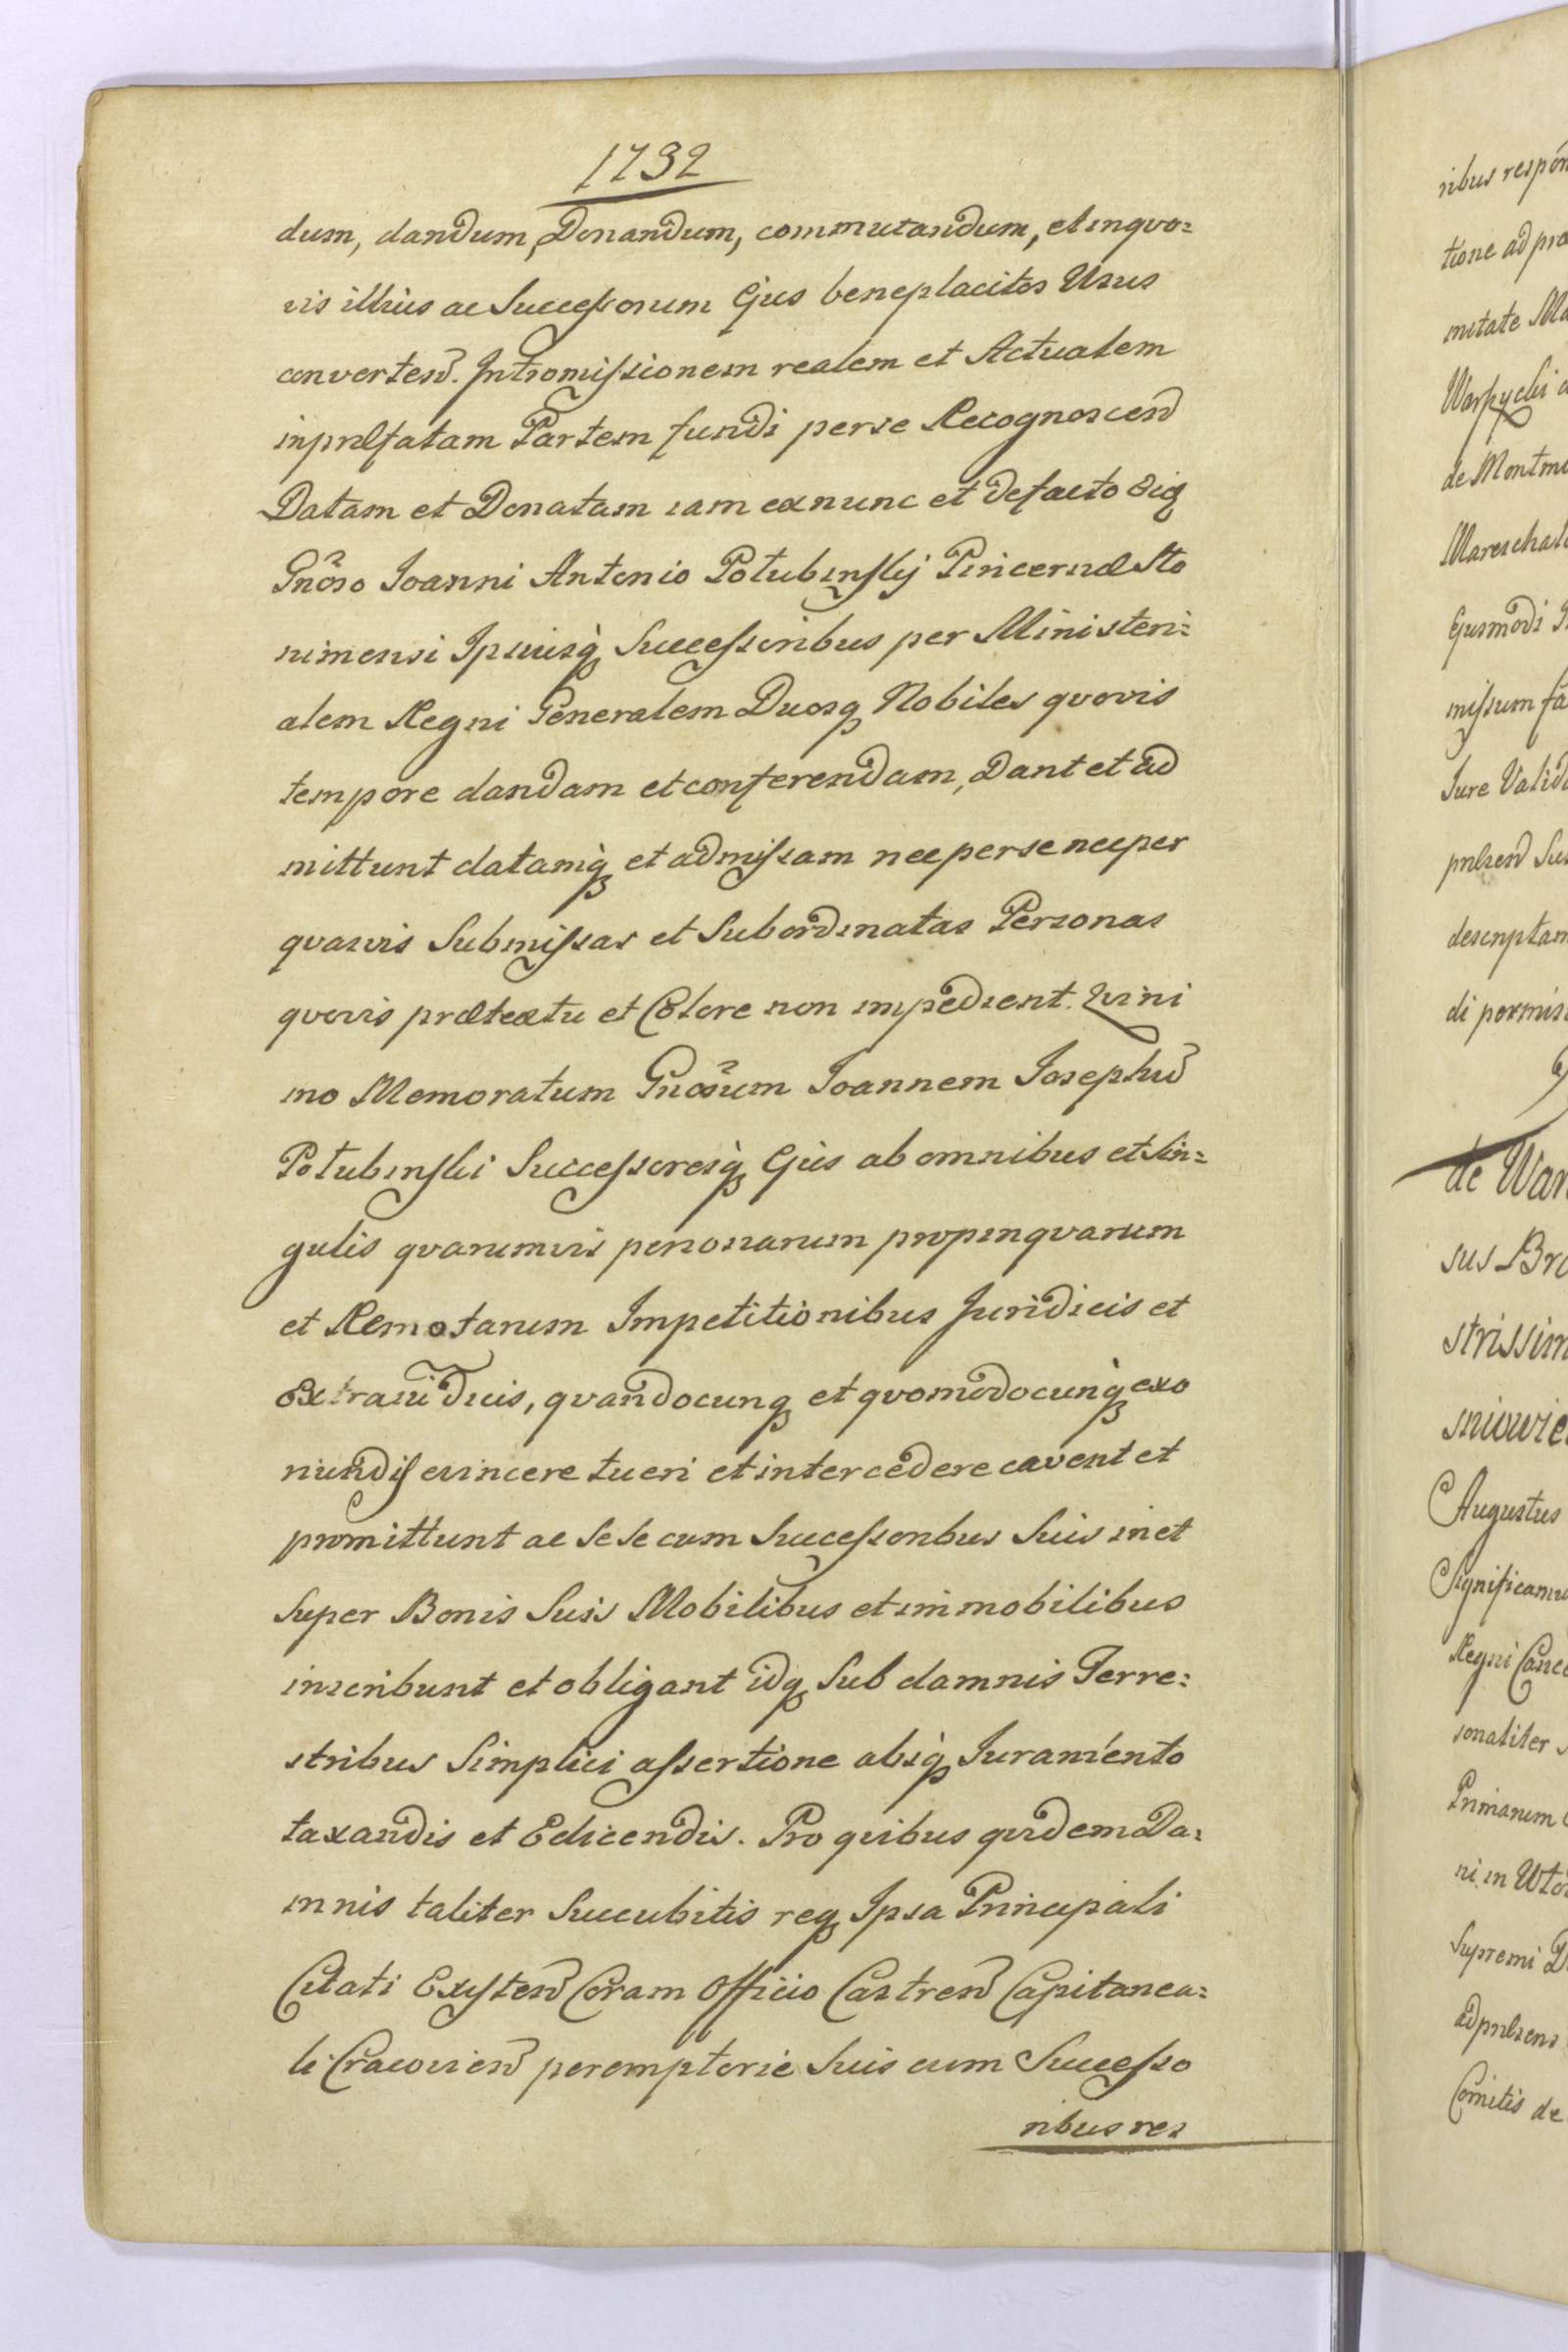 1732
dum, dandum, Donandum, commutandum, et inqvo=
vis illius ac Successorum Ejus beneplacitos Usus
converten̄d. Intromissionem realem et Actualem
inpræfatam Partem fundi per se Recognoscen̄d
Datam et Donatam iam ex nunc et de facto
Gnōso Joanni Antonio Potubinskij Pincernæ Sto
nimensi Ipsiusq̀ Successoribus per Ministeri=
alem Regni Generalem Duosq Nobiles qvovis
tempore dandam et conferendam, Dant et ad
mittunt datamq̀ et admissam nec per se nec per
qvasvis Submissas et Subordinatas Personas
qvovis prætextu et Colore non impedient. Qvini
mo Memoratum Gnōsum Joannem Josephū
Potubinski Successoresq̀ Ejus ab omnibus et Sin=
gulis qvarumvis personarum propinqvarum
et Remotarum Impetitionibus Juridicis et
Extraiuridicis, qvandocunq et qvomodocunq̀ exo
riundis evincere tueri et intercedere cavent et
promittunt ac Se Se cum Successoribus Suis in et
Super Bonis Suis Mobilibus et immobilibus
inscribunt et obligant idq Sub damnis Terre=
stribus Simplici assertione absq̀ Juramento
taxandis et Edicendis. Pro qvibus qvidem Da=
mnis taliter Succubitis req Ipsa Principali
Citati Existen̄d Coram Officio Castren̄d Capitanea=
li Cracovien̄d peremptorie Suis cum Successo
ribus res
ribus respon
tione ad præ
mitate Ma
Warszycki
de Montm
Mareschal
Ejusmodi
missum fa
Jure Valid
Sus
descriptam
di permis
de War
sus Bra
strissim
sniowie
Augustus
Significamu
Regni Cance
sonaliter
Primarum
ni in
Supremi
Comitis de